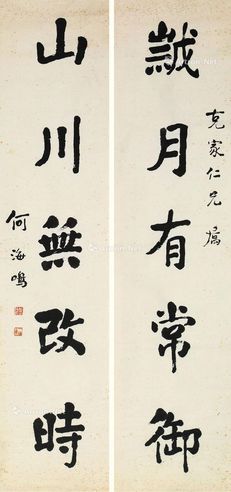 克家仁兄屬
歲月有常御
山川無改時
何海鳴